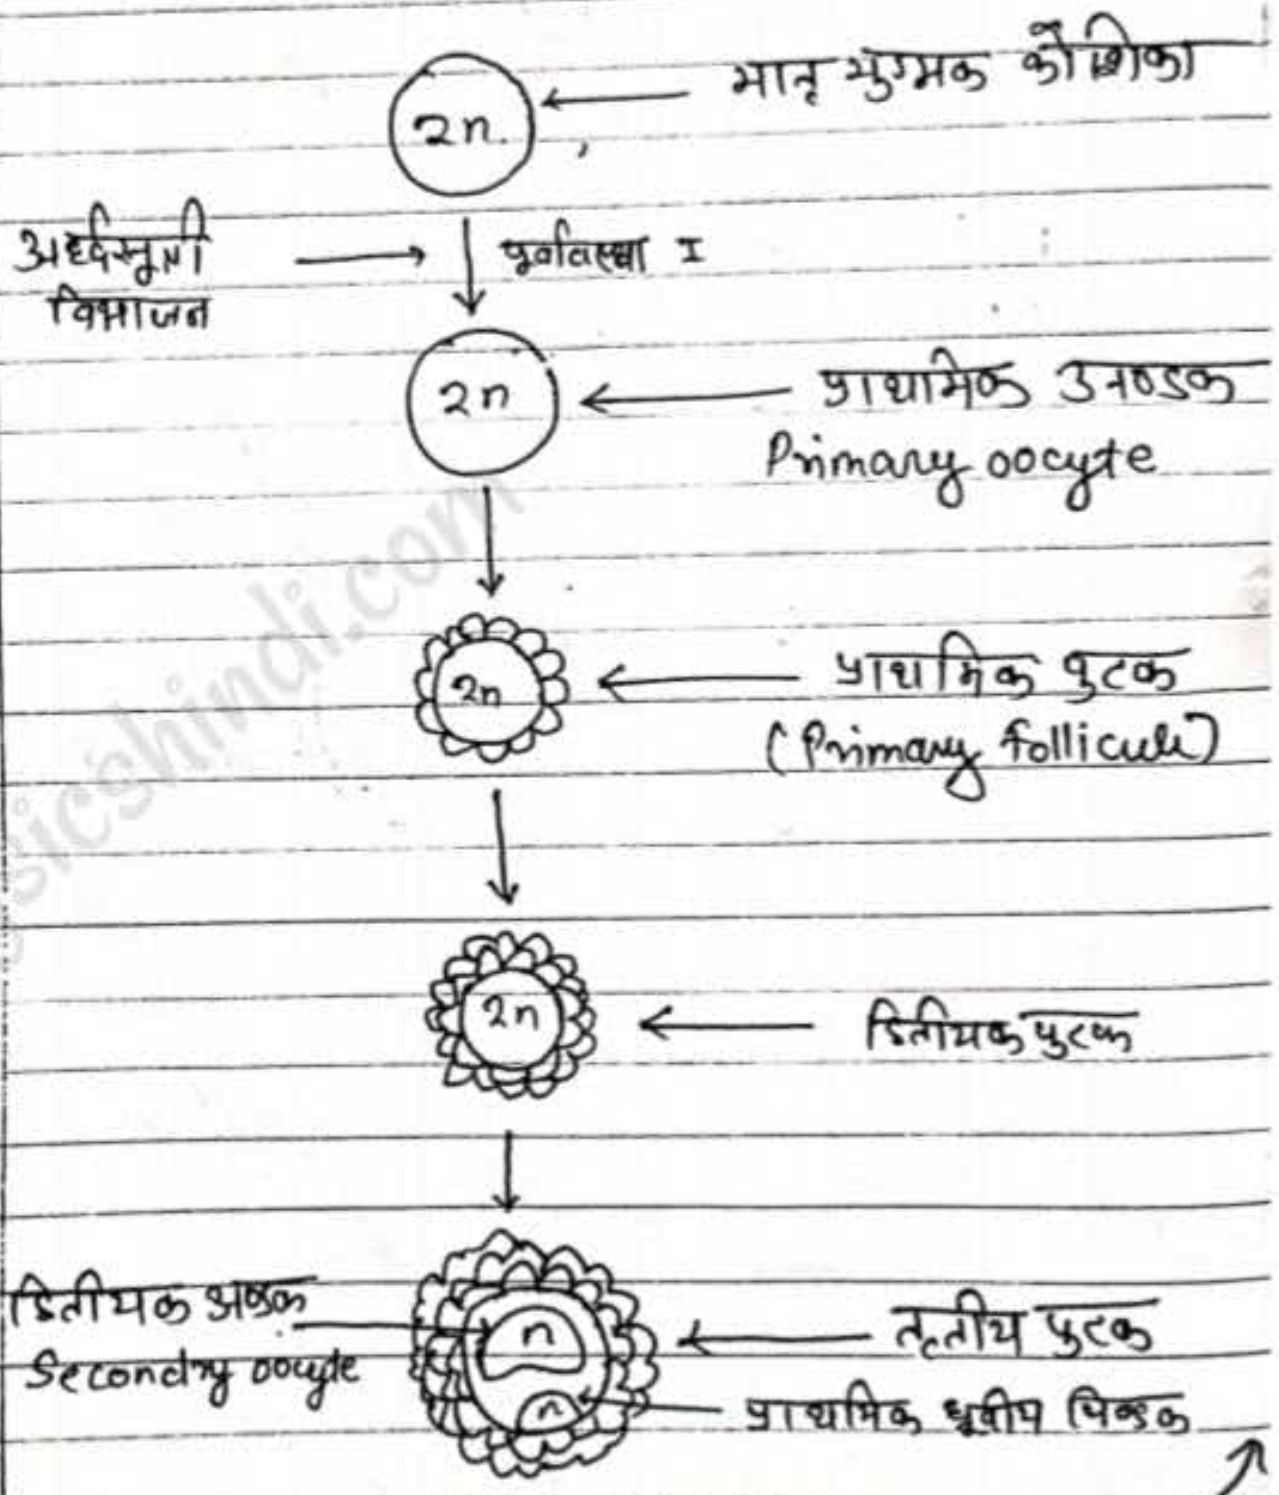 2n
मातृ युग्मक कोशिका
अर्द्धसूत्री
विभाजन
पूर्वावस्था I
2n
प्राथमिक अण्डक
Primary oocyte
2n
प्राथमिक पुटक
(Primary follicule)
2n
द्वितीयक पुटक
द्वितीयक अण्डक
Secondry oocyte
n
तृतीय पुटक
n
प्राथमिक ध्रुवीय पिण्डक